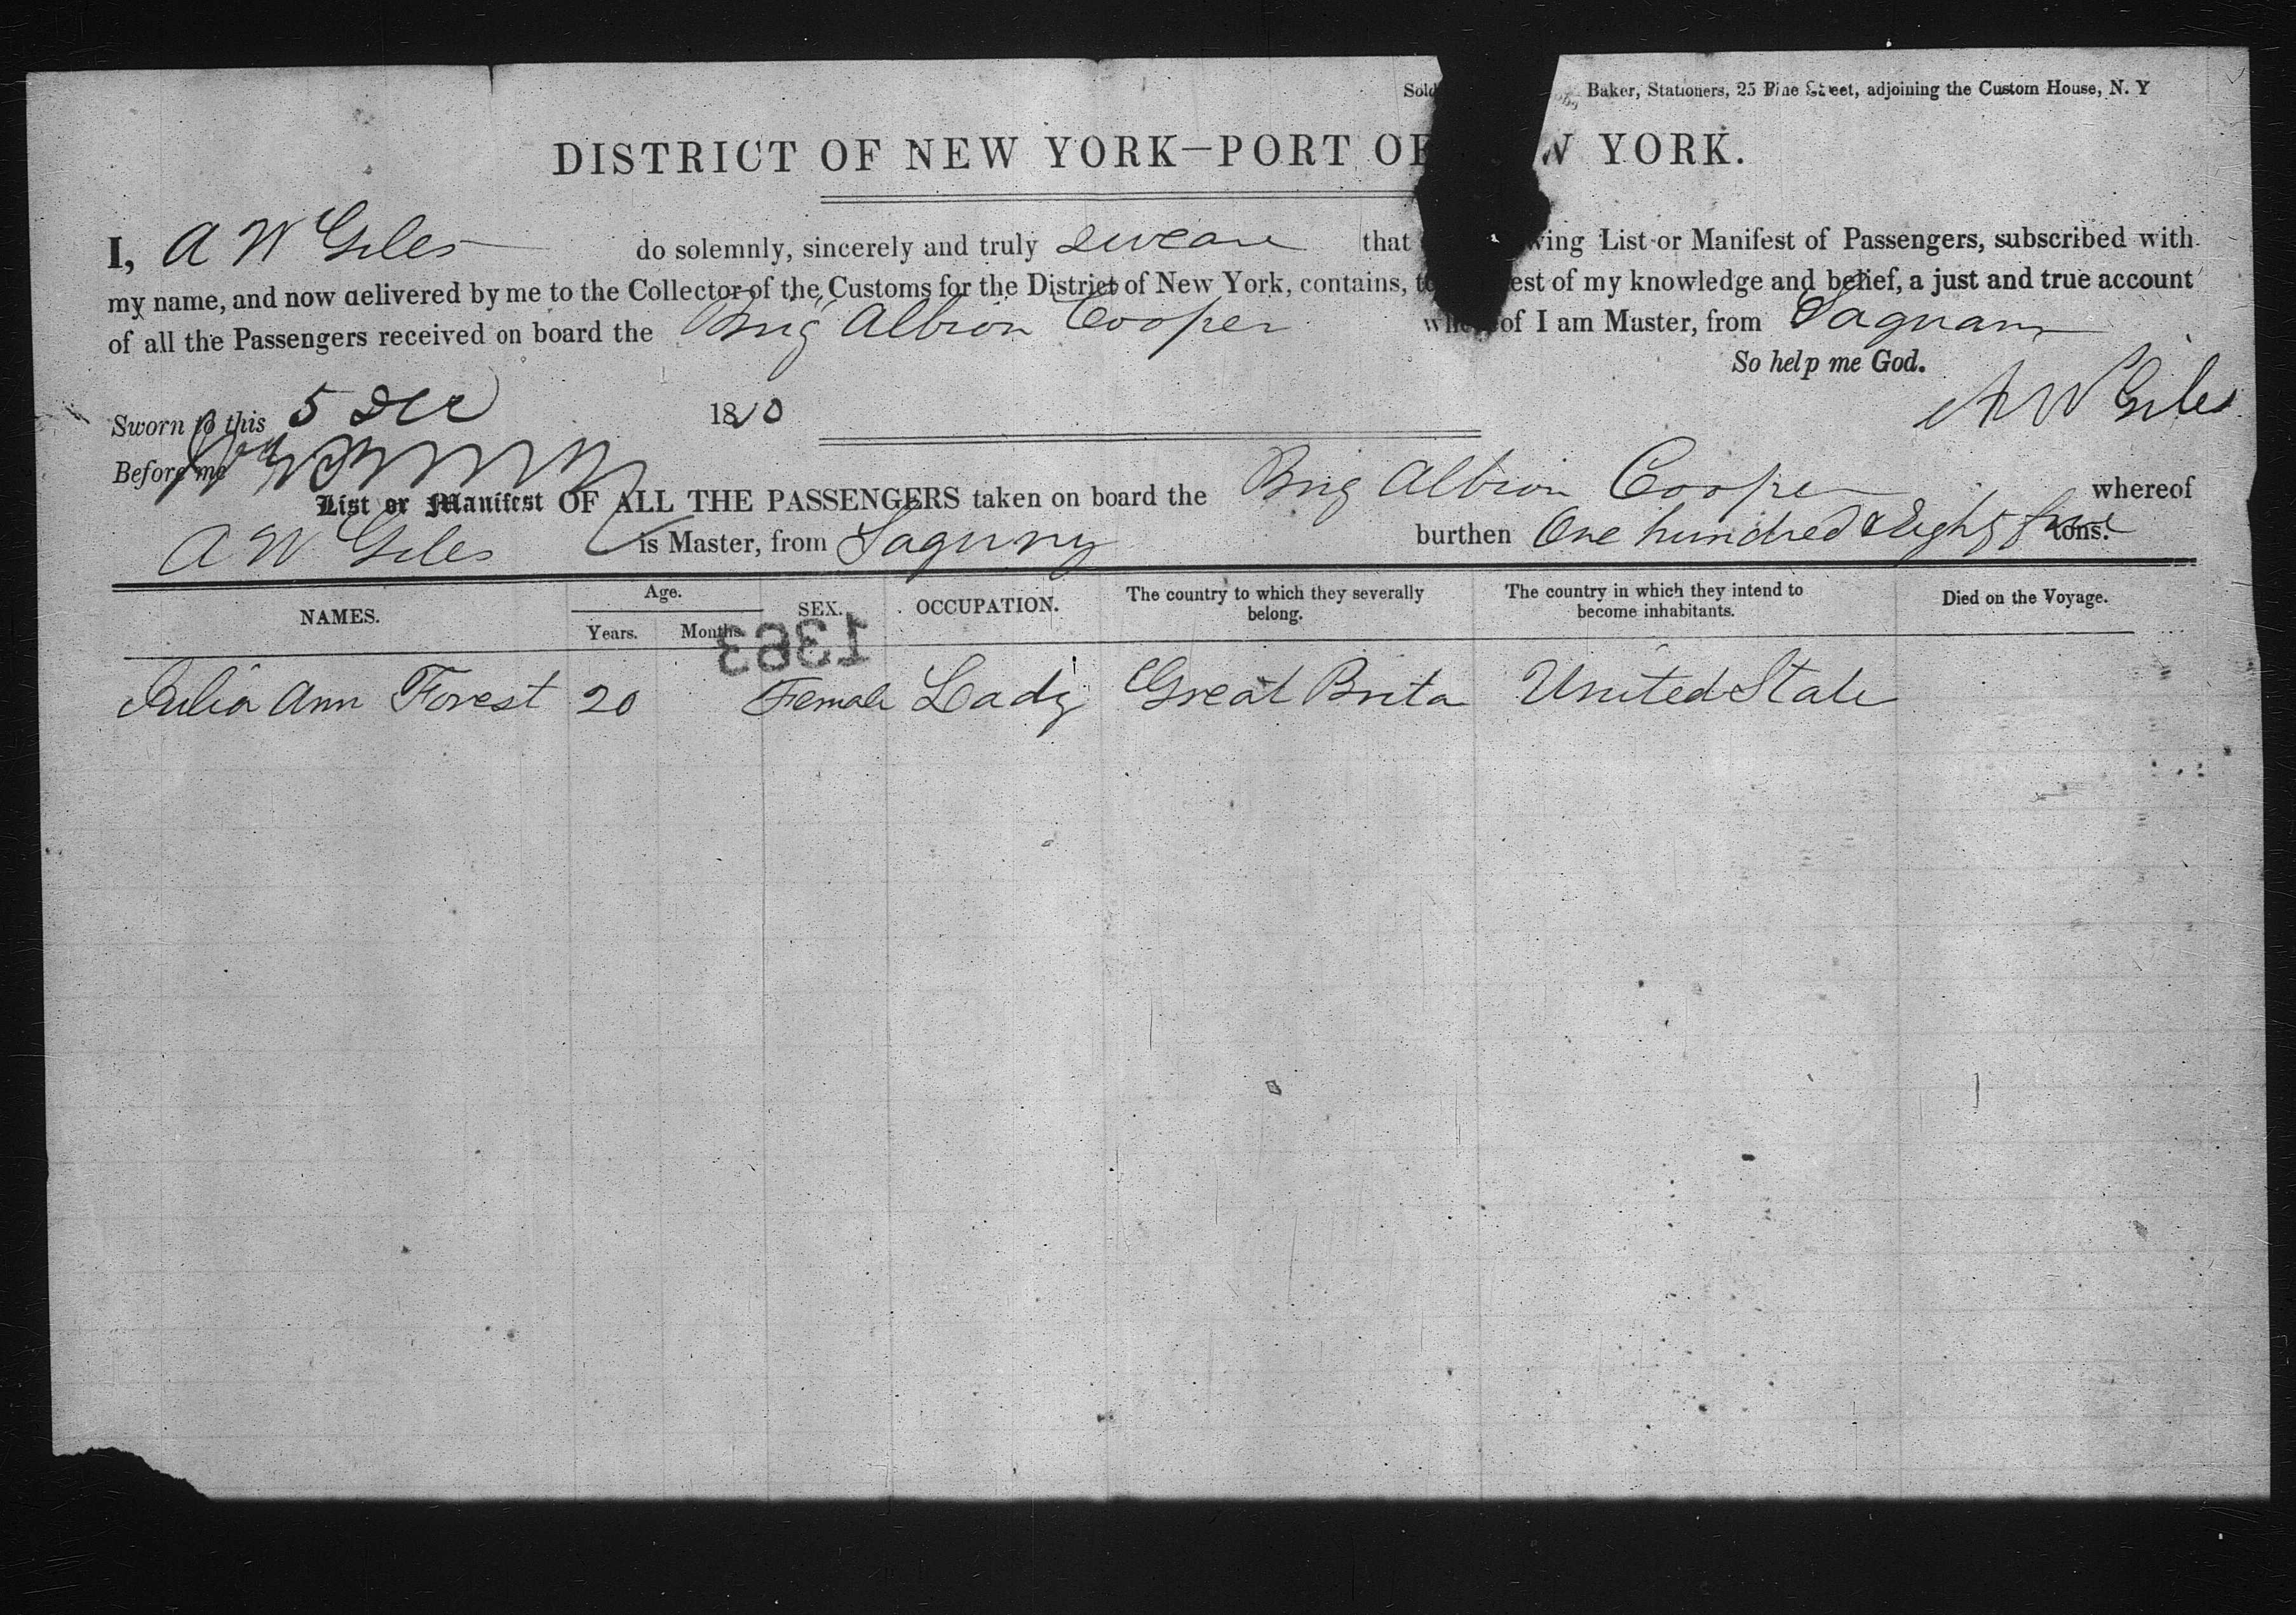 Sold Baker, Stationers, 25 Pine Street, adjoining the Custom House, N. Y
DISTRICT OF NEW YORK—PORT OF W YORK.
I, A W Giles do solemnly, sincerely and truly swear that wing List or Manifest of Passengers, subscribed with
my name, and now delivered by me to the Collector of the Customs for the District of New York, contains, to est of my knowledge and belief, a just and true account
of all the Passengers received on board the Brig Albion Cooper whereof I am Master, from
So help me God.
A W Giles
Sworn to this 5 Dec 18
Before me
List or Manifest OF ALL THE PASSENGERS taken on board the Brig Albion Cooper whereof
A W Giles is Master, from burthen One hundred & Eighty five tons.
NAMES. Age. SEX. OCCUPATION. The country to which they severally belong. The country in which they intend to become inhabitants. Died on the Voyage.
Years. Months.
1363
Julia Ann Forest 20 Female Lady Great Brita United State